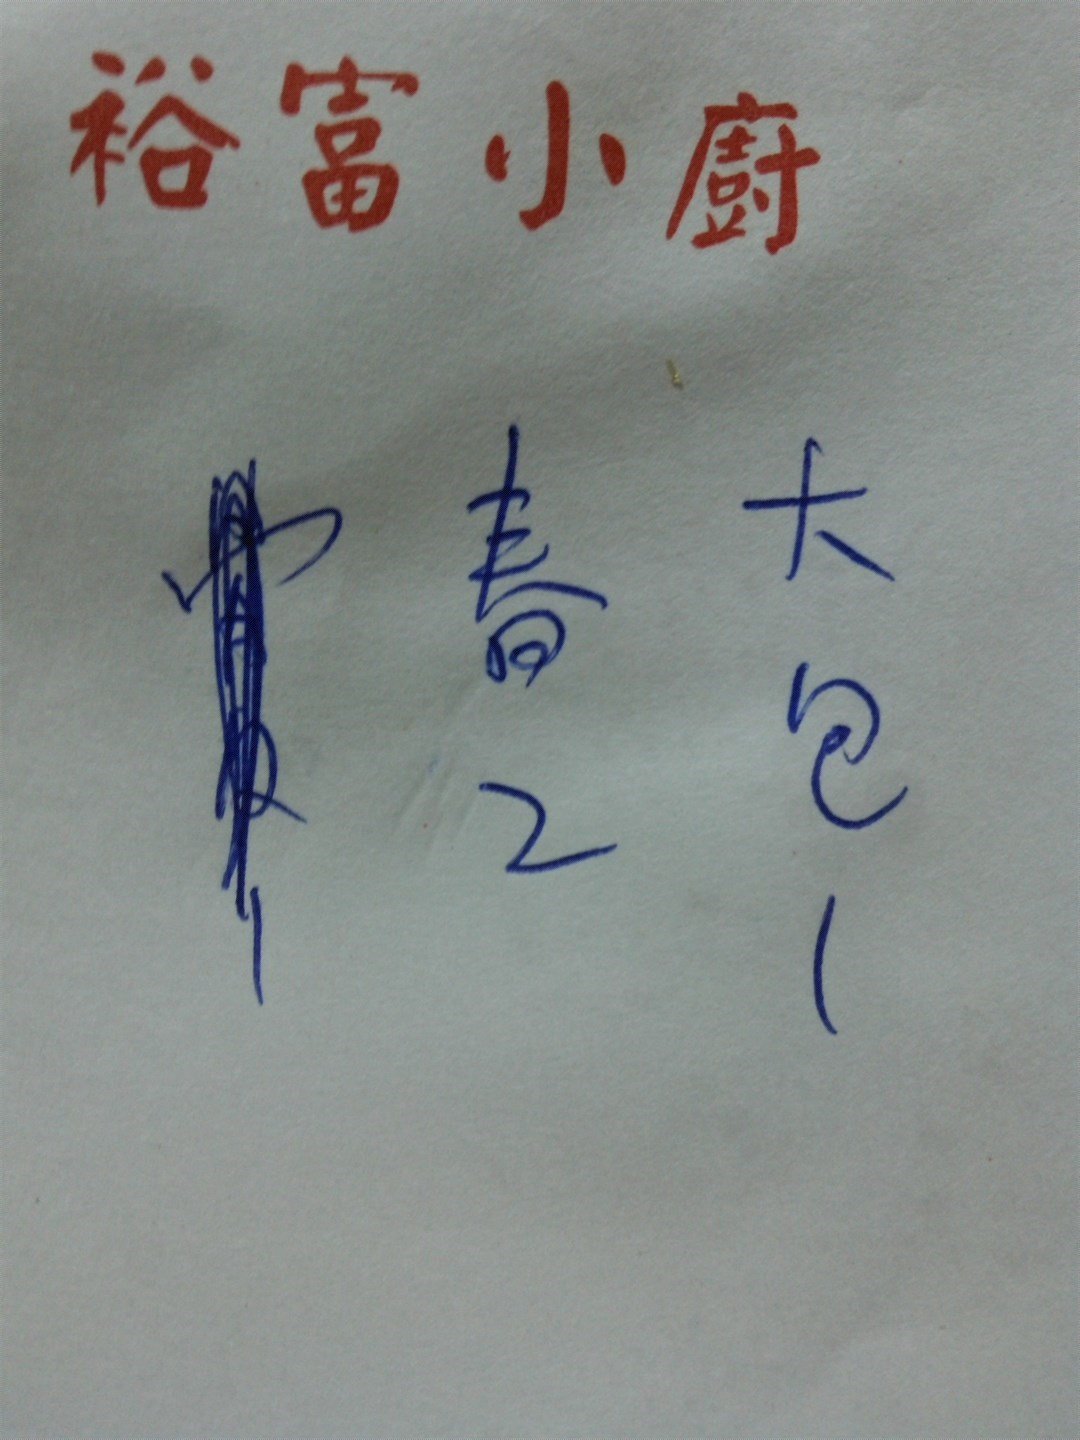 裕富小廚
大包1
春2
1